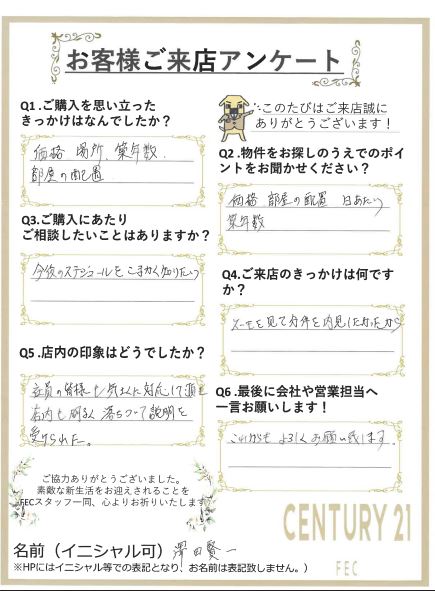 お客様ご来店アンケート
Q1.ご購入を思い立った
きっかけはなんでしたか？
価格 場所、築年数、
部屋の配置
このたびはご来店誠に
ありがとうございます！
Q2.物件をお探しのうえでのポイ
ントをお聞かせください？
価格 部屋の配置 日あたり
築年数
Q3.ご購入にあたり
ご相談したいことはありますか？
今後のスケジュールをこまかく知りたい
Q4.ご来店のきっかけは何です
か？
スーモを見て物件を内見したかったから
Q5.店内の印象はどうでしたか？
社員の皆様も気さくに対応して頂き
店内も明るく落ちついて説明を
受けられた。
Q6.最後に会社や営業担当へ
一言お願いします！
これからもよろしくお願い致します。
ご協力ありがとうございました。
素敵な新生活をお迎えされることを
FECスタッフ一同、心よりお祈りいたします
CENTURY 21
FEC
名前（イニシャル可）澤田賢一
※HPにはイニシャル等での表記となり、お名前は表記致しません。）